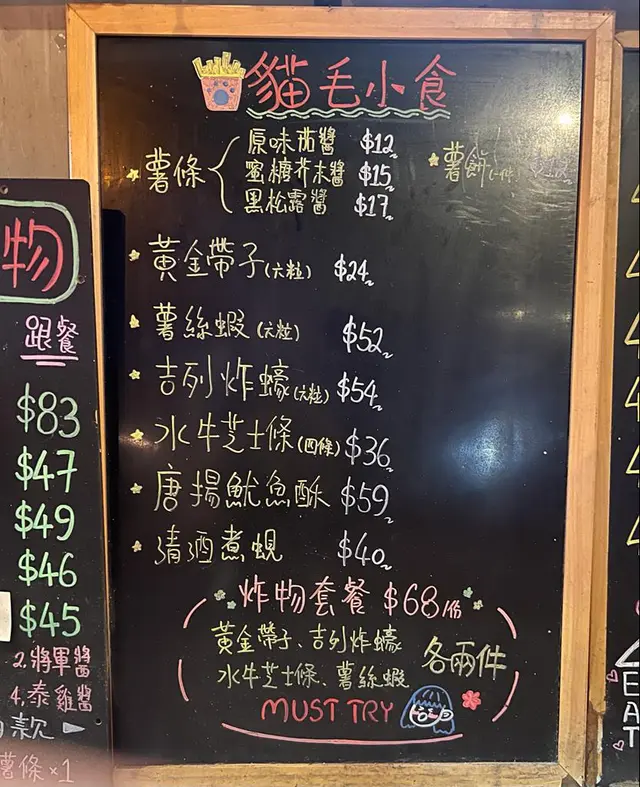 貓毛小食
薯條
原味茄醬 $12
蜜糖芥末醬 $15
黑松露醬 $17
薯餅(一件)
黃金帶子(六粒) $24
薯絲蝦(六粒) $52
吉列炸蠔(六粒) $54
水牛芝士條(四條) $36
唐揚魷魚酥 $59
清酒煮蜆 $40
炸物套餐 $68/份
黃金帶子、吉列炸蠔
水牛芝士條、薯絲蝦
各兩件
MUST TRY
物
跟餐
$83
$47
$49
$46
$45
2.將軍醬
4.泰雞醬
款
薯條×1
EAT